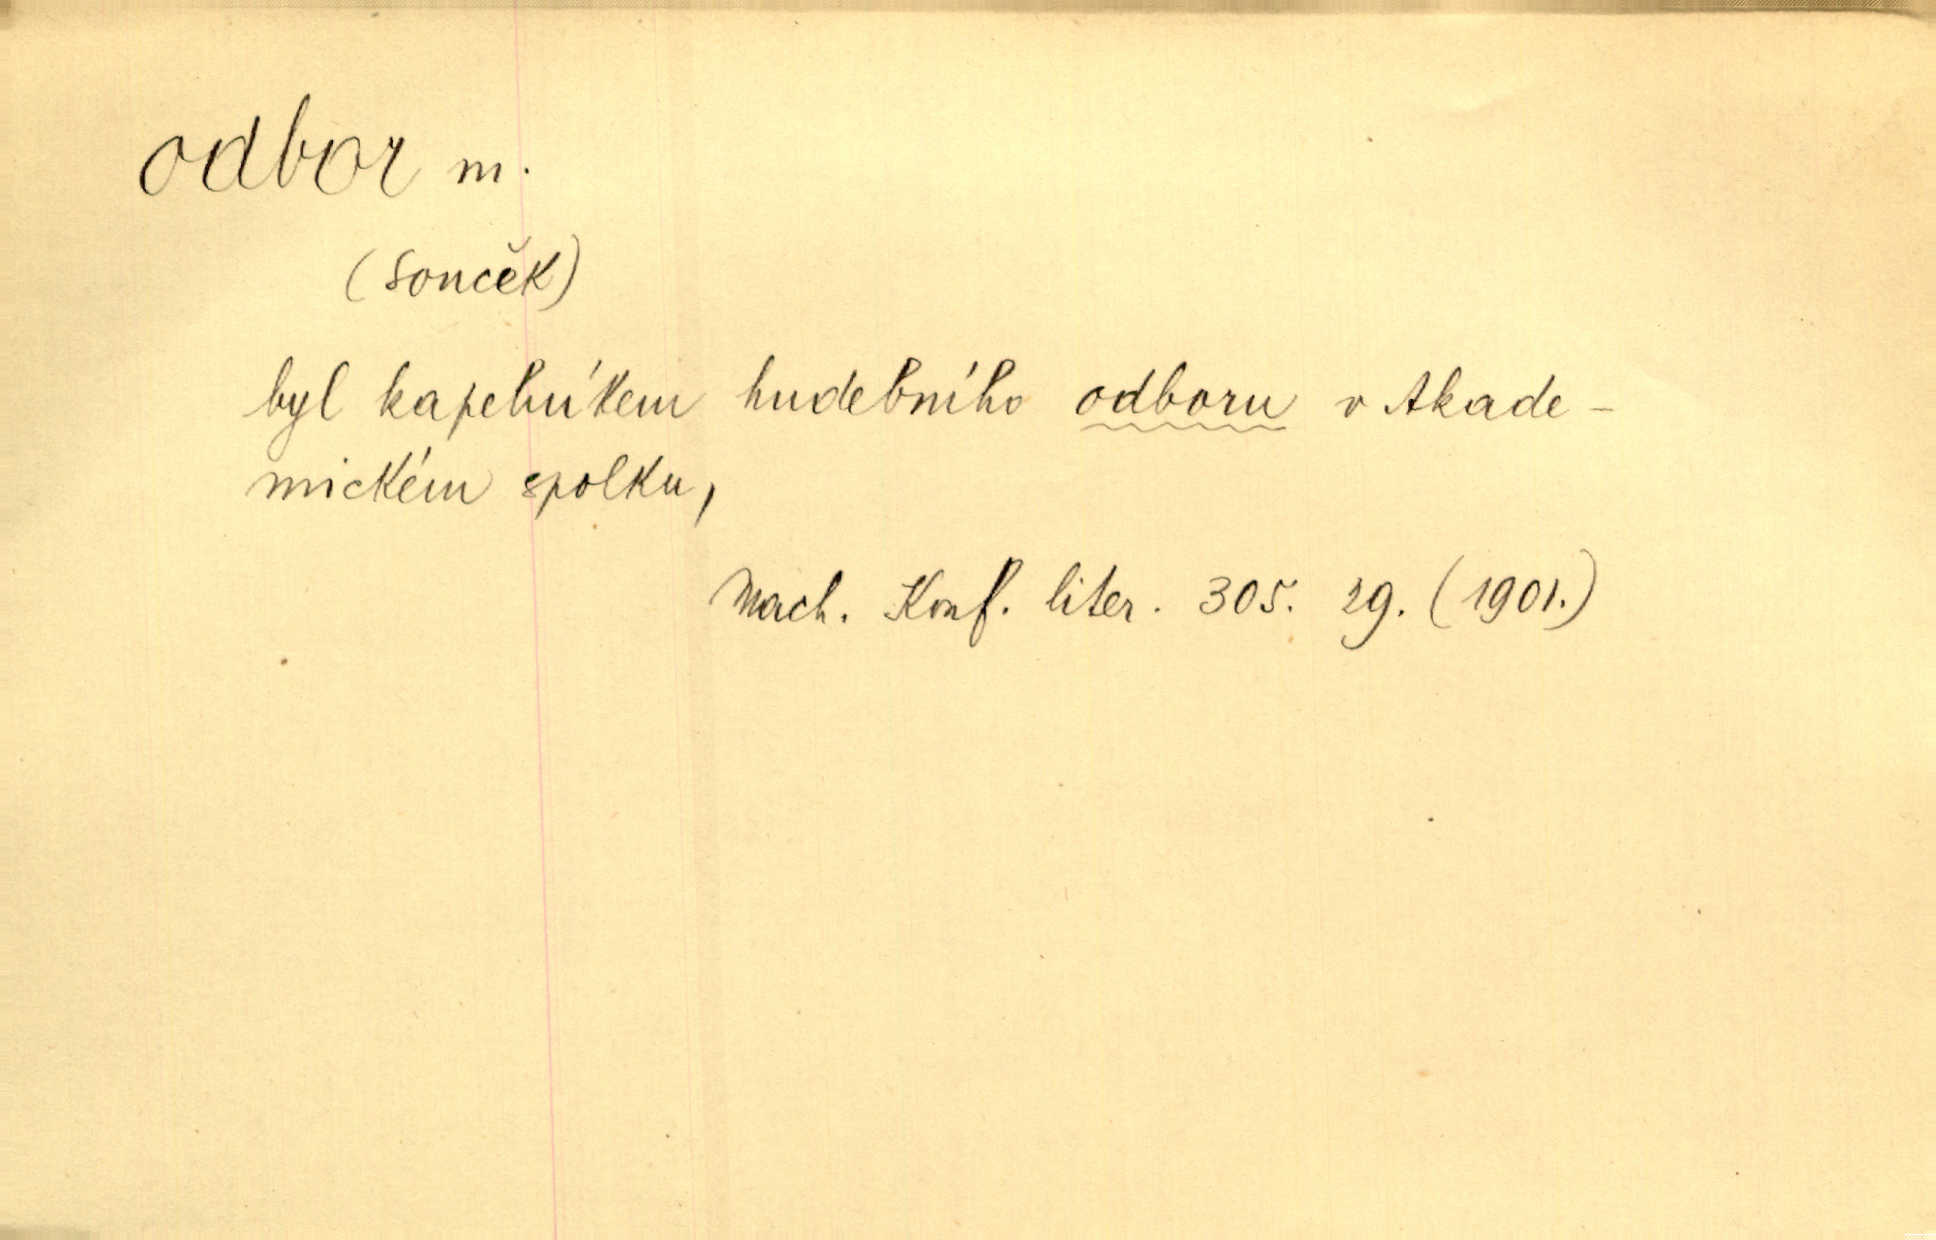 odbor m.
(Souček)
byl kapelníkem hudebního odboru v Akade-
mickém spolku,
Mach. Konf. liter. 305. 29. (1901.)